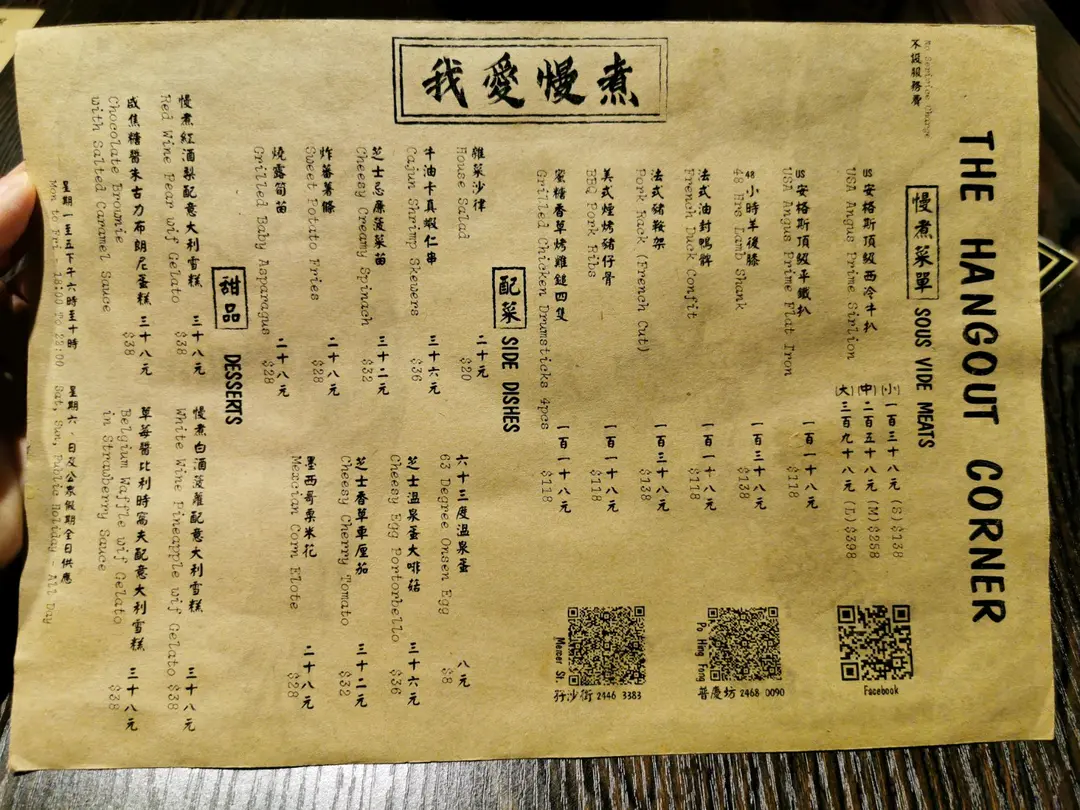 我愛慢煮
THE HANGOUT CORNER
No Service Charge
不設服務費
慢煮菜單 SOUS VIDE MEATS
US安格斯頂級西冷牛扒
USA Angus Prime Sirlion
(小)一百三十八元 (S)$138
(中)二百五十八元 (M)$258
(大)三百九十八元 (L)$398
US安格斯頂級平鐵扒 一百一十八元
USA Angus Prime Flat Iron $118
48小時羊後膝 一百三十八元
48 Hrs Lamb Shank $138
法式油封鴨髀 一百一十八元
French Duck Confit $118
法式豬鞍架 一百三十八元
Pork Rack (French Cut) $138
美式煙烤豬仔骨 一百一十八元
BBQ Pork Ribs $118
蜜糖香草烤雞鎚四隻 一百一十八元
Grilled Chicken Drumsticks 4pcs $118
Facebook
Po Hing Fong
普慶坊 2468 0090
Mercer St.
孖沙街 2446 3383
配菜 SIDE DISHES
雜菜沙律 二十元
House Salad $20
牛油卡真蝦仁串 三十六元
Cajun Shrimp Skewers $36
芝士忌廉菠菜苗 三十二元
Cheesy Creamy Spinach $32
炸蕃薯條 二十八元
Sweet Potato Fries $28
燒露筍苗 二十八元
Grilled Baby Asparagus $28
六十三度溫泉蛋 八元
63 Degree Onsen Egg $8
芝士溫泉蛋大啡菇 三十六元
Cheesy Egg Portorbello $36
芝士香草車厘茄 三十二元
Cheesy Cherry Tomato $32
墨西哥粟米花 二十八元
Mexcian Corn Elote $28
甜品 DESSERTS
慢煮紅酒梨配意大利雪糕 三十八元
Red Wine Pear wif Gelato $38
咸焦糖醬朱古力布朗尼蛋糕 三十八元
Chocolate Brownie $38
with Salted Caramel Sauce
慢煮白酒菠蘿配意大利雪糕 三十八元
White Wine Pineapple wif Gelato $38
草莓醬比利時窩夫配意大利雪糕 三十八元
Belgium Waffle wif Gelato $38
in Strawberry Sauce
星期一至五下午六時至十時 星期六、日及公眾假期全日供應
Mon to Fri - 18:00 To 22:00 Sat, Sun, Public Holiday - All Day